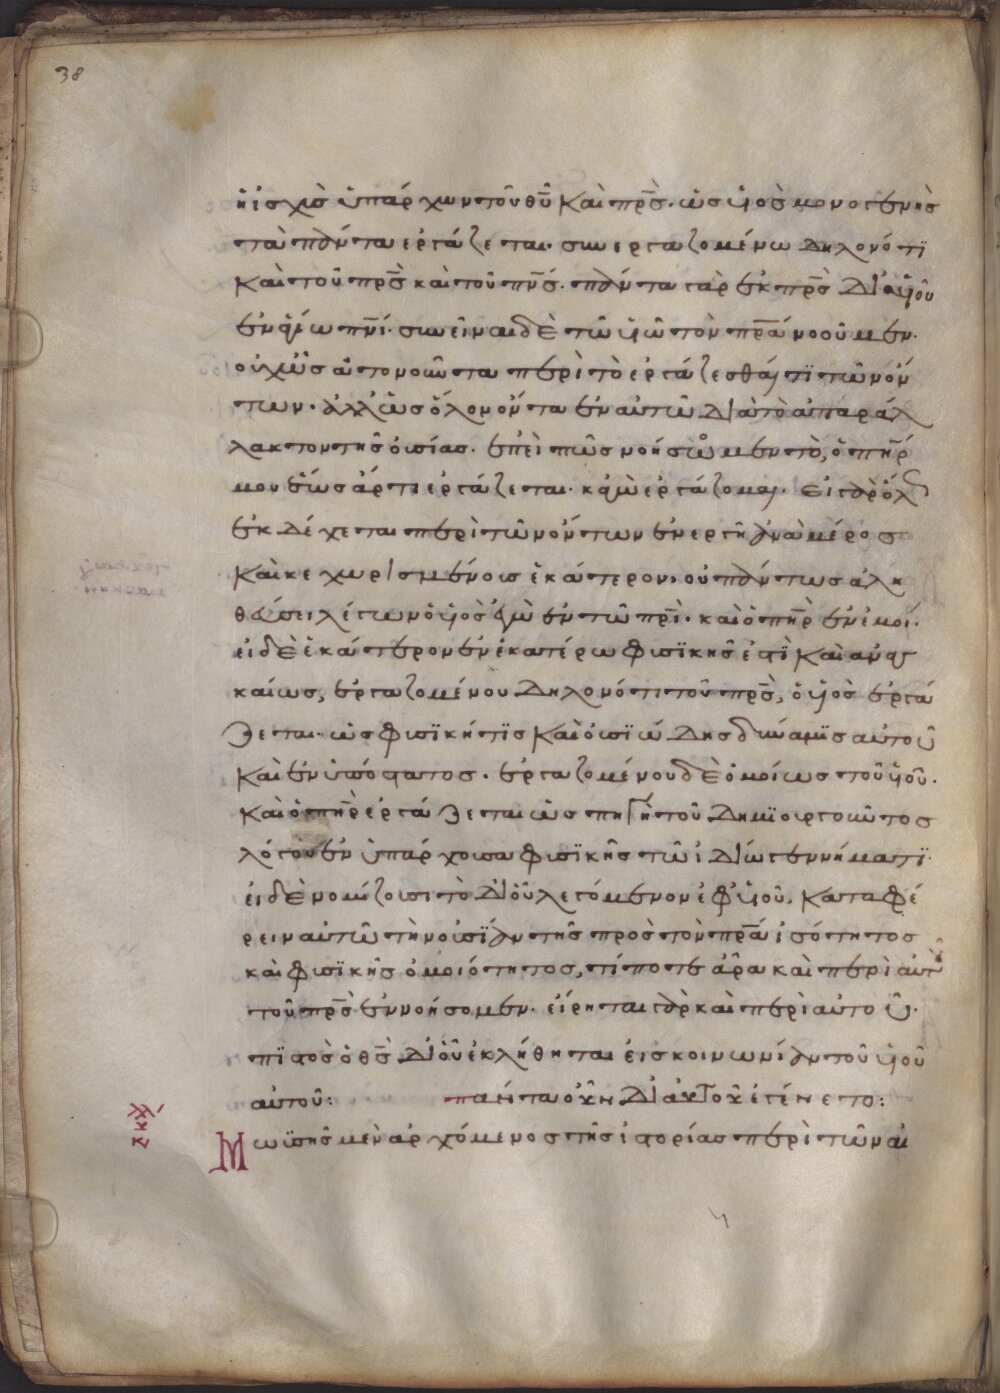 38
ἡ ἰσχὺς ὑπάρχων τοῦ θῦ καὶ πρ̅ς. ὡς υἱὸς μονογενὴς
τὰ πάντα ἐργάζεται. συνεργαζομένω δηλονότι
καὶ τοῦ πρ̅ς καὶ τοῦ πν̅ς. πάντα γὰρ ἐκ πρ̅ς δι' υἱοῦ
ἐν ἁγίω πν̅ι. συνεῖναι δὲ τῶ υἱῶ τὸν πρ̅α νοοῦμεν.
οὐχ ὡς ἀτονοῦντα περὶ τὸ ἐργάζεσθαί τι τῶν ὄν
των. ἀλλ' ὡς ὅλον ὄντα ἐν αὐτῶ διὰ τὸ ἀπαράλ
λακτον τῆς οὐσίας. ἐπεὶ πῶς νοήσωμεν τὸ, ὁ πη̅ρ
μου ἕως ἄρτι ἐργάζεται. κἀγὼ ἐργάζομαι. εἰ γὰρ ὅλως
ἐκδέχεται περὶ τῶν ὄντων ἐνεργῆ ἀνὰ μέρος
καὶ κεχωρισμένοις ἑκάτερον, οὐ πάντως ἀλη
θεύσει λέγων ὁ υἱὸς ἐγὼ ἐν τῶ πρ̅ι. καὶ ὁ πη̅ρ ἐν ἐμοί.
εἰ δὲ ἑκάτερον ἐν ἑκατέρω φυσικῆς ἐστὶ καὶ ἀναγ
καίως, ἐργαζομένου δηλονότι τοῦ πρ̅ς, ὁ υἱὸς ἐργά
ζεται. ὡς φυσική τις καὶ οὐσιώδης δύναμις αὐτοῦ
καὶ ἐνυπόστατος. ἐργαζομένου δὲ ὁμοίως τοῦ υἱοῦ.
καὶ ὁ πη̅ρ ἐργάζεται ὡς πηγὴ τοῦ δημιουργοῦντος
λόγου ἐνυπάρχουσα φυσικῆς τῶ ἰδίω γεννήματι
εἰ δὲ νομίζουσι τὸ δι' οὗ λεγόμενον ἐφ' υἱοῦ. καταφέ
ρειν αὐτῶ τὴν οὐσίαν τῆς πρὸς τὸν πρ̅α ἰσότητος
καὶ φυσικῆς ὁμοιότητος, τί ποτε ἄρα καὶ περὶ αὐτοῦ
τοῦ πρ̅ς ἐννοήσομεν. εἴρηται γὰρ καὶ περὶ αὐτοῦ.
πιστὸς ὁ θ̅ς δι' οὗ ἐκλήθηται εἰς κοινωνίαν τοῦ υἱοῦ
αὐτοῦ: πάντα οὖν δι' αὐτοῦ ἐγένετο:
Μωϋσῆς μὲν ἀρχόμενος τῆς ἱστορίας περὶ τῶν αἰ